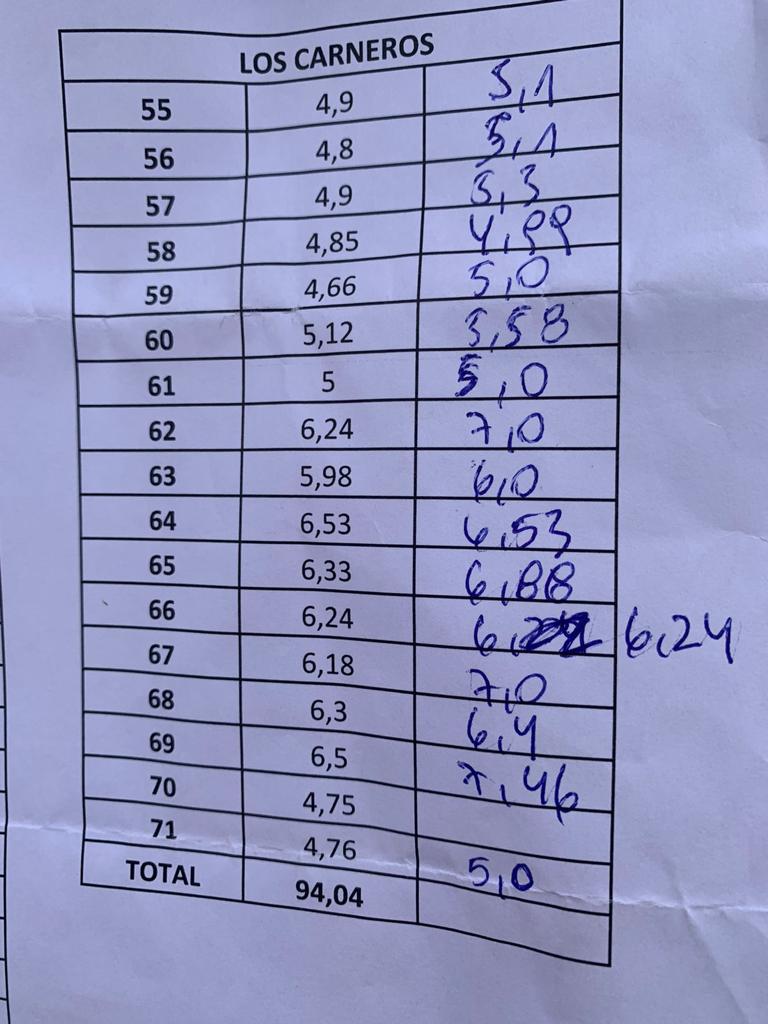 LOS CARNEROS
55 4,9 5,1
56 4,8 5,1
57 4,9 5,3
58 4,85 4,99
59 4,66 5,0
60 5,12 5,58
61 5 5,0
62 6,24 7,0
63 5,98 6,0
64 6,53 6,53
65 6,33 6,88
66 6,24 6,24
67 6,18 7,0
68 6,3 6,4
69 6,5 7,46
70 4,75
71 4,76 5,0
TOTAL 94,04